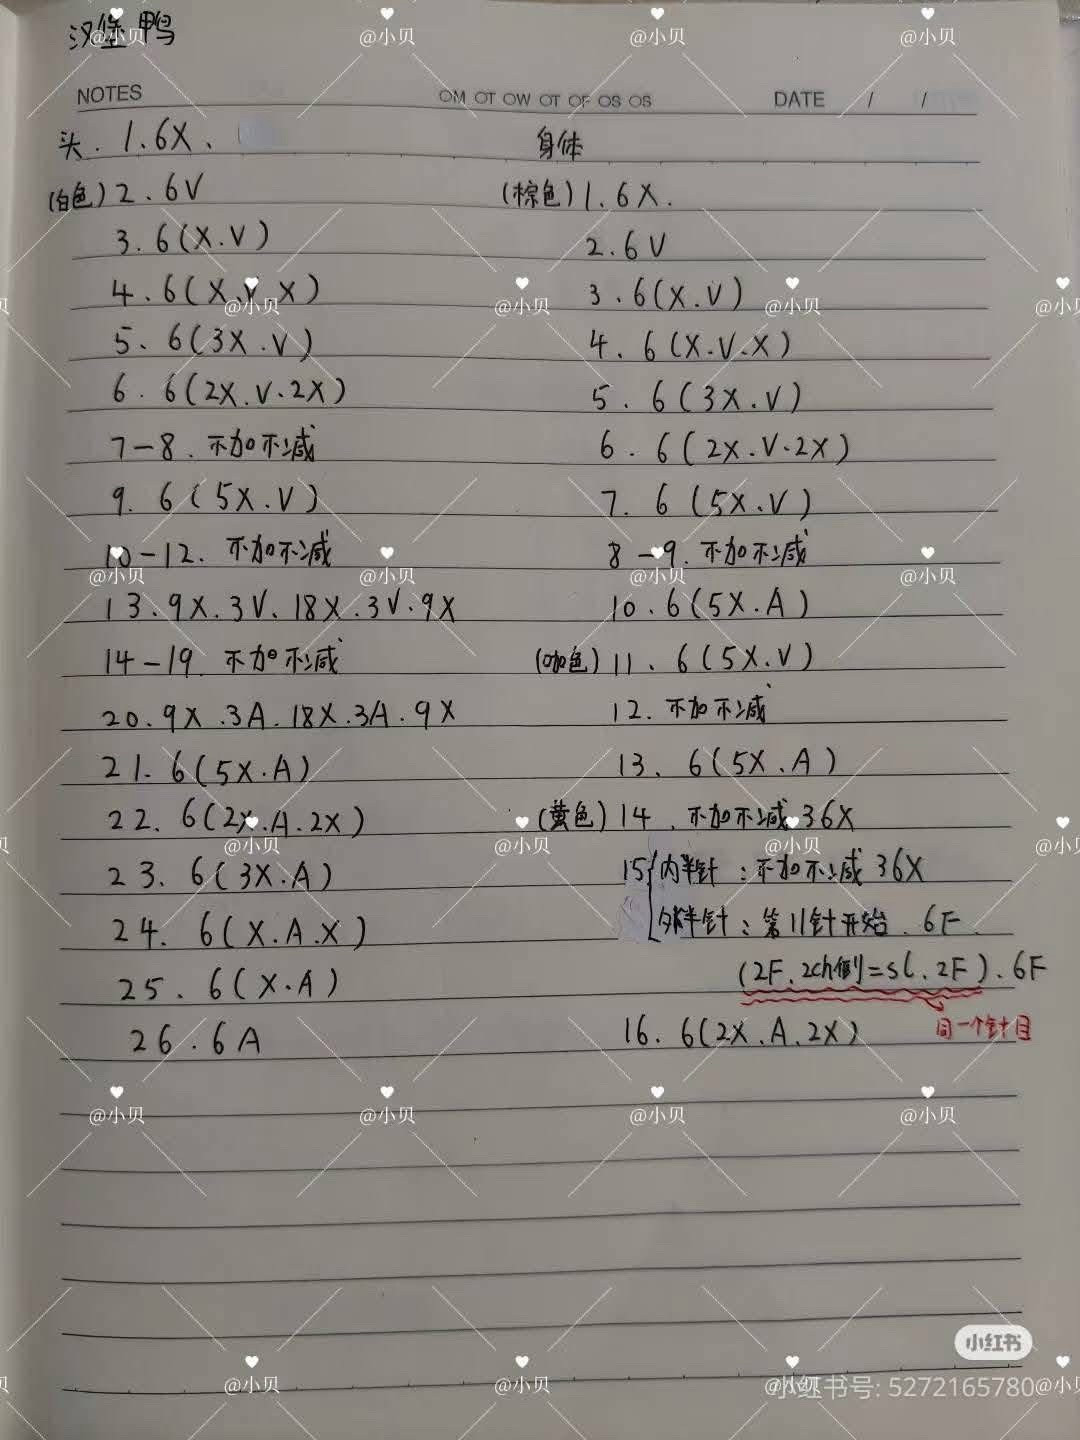 汉堡鸭
NOTES
OM OT OW OT OF OS OS
DATE / /
头. 1.6X.
(白色) 2.6V
3.6(X.V)
4.6(X.V.X)
5.6(3X.V)
6.6(2X.V.2X)
7-8.不加不减
9.6(5X.V)
10-12.不加不减
13.9X.3V.18X.3V.9X
14-19.不加不减
20.9X.3A.18X.3A.9X
21.6(5X.A)
22.6(2X.A.2X)
23.6(3X.A)
24.6(X.A.X)
25.6(X.A)
26.6A
身体
(棕色) 1.6X.
2.6V
3.6(X.V)
4.6(X.V.X)
5.6(3X.V)
6.6(2X.V.2X)
7.6(5X.V)
8-9.不加不减
10.6(5X.A)
(咖色) 11.6(5X.V)
12.不加不减
13.6(5X.A)
(黄色) 14.不加不减 36X
15{内半针:不加不减 36X
外半针:第11针开始.6F.
(2F.2ch倒=sl.2F).6F
同一个针目
16.6(2X.A.2X)
@小贝
小红书
小红书号: 5272165780